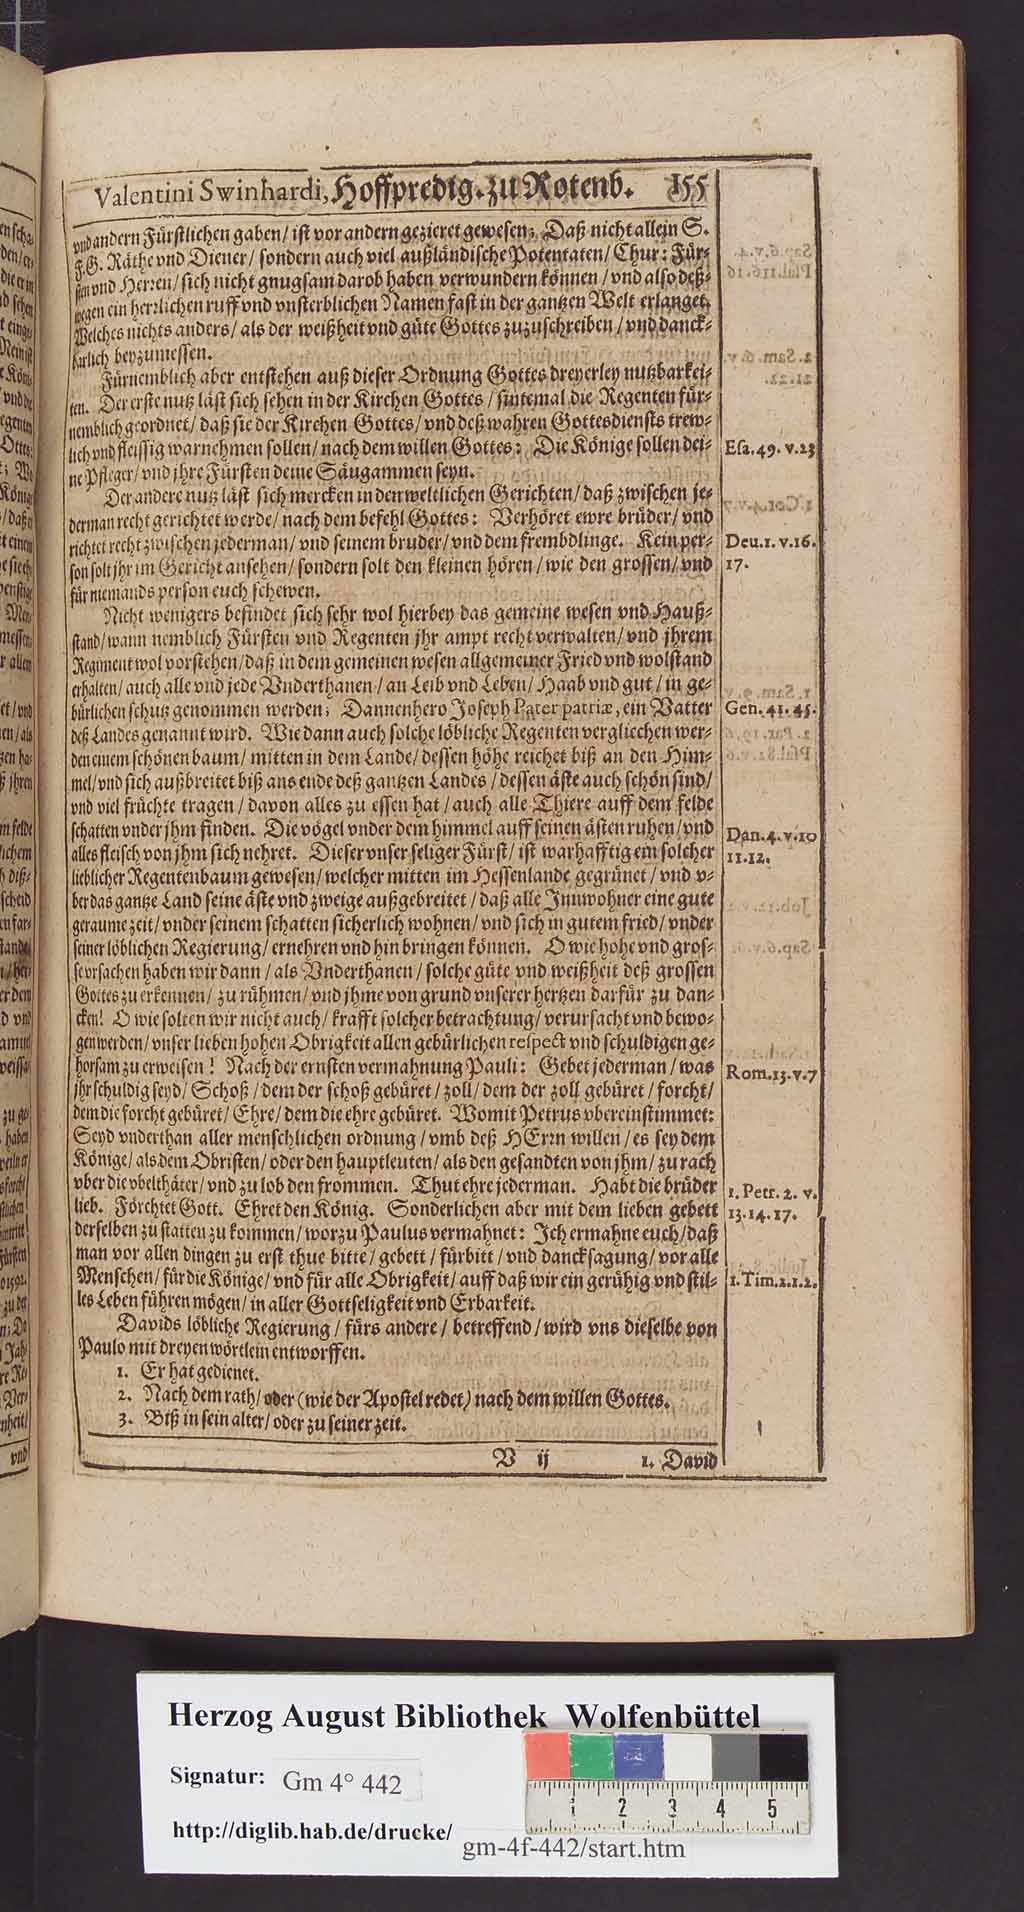 Valentini Swinhardi, Hoffpredig. zu Rotenb. 155
vnd andern Fürstlichen gaben / ist vor andern gezieret gewesen; Daß nicht allein S.
F.G. Räthe vnd Diener / sondern auch viel außländische Potentaten / Chur: Für-
sten vnd Herren / sich nicht gnugsam darob haben verwundern können / vnd also deß-
wegen ein herrlichen ruff vnd vnsterblichen Namen fast in der gantzen Welt erlanget.
Welches nichts anders / als der weißheit vnd güte Gottes zuzuschreiben / vnd danck-
barlich beyzumessen.
Fürnemblich aber entstehen auß dieser Ordnung Gottes dreyerley nutzbarkei-
ten. Der erste nutz läst sich sehen in der Kirchen Gottes / sintemal die Regenten für-
nemblich geordnet / daß sie der Kirchen Gottes / vnd deß wahren Gottesdiensts trew-
lich vnd fleissig warnehmen sollen / nach dem willen Gottes: Die Könige sollen dei-
Esa. 49. v. 23
ne Pfleger / vnd jhre Fürsten deine Säugammen seyn.
Der andere nutz läst sich mercken in den weltlichen Gerichten / daß zwischen je-
derman recht gerichtet werde / nach dem befehl Gottes: Verhöret ewre brüder / vnd
richtet recht zwischen jederman / vnd seinem bruder / vnd dem frembdlinge. Kein per-
Deu. 1. v. 16.
son solt jhr im Gericht ansehen / sondern solt den kleinen hören / wie den grossen / vnd
17.
für niemands person euch schewen.
Nicht wenigers befindet sich sehr wol hierbey das gemeine wesen vnd Hauß-
stand / wann nemblich Fürsten vnd Regenten jhr ampt recht verwalten / vnd jhrem
Regiment wol vorstehen / daß in dem gemeinen wesen allgemeiner Fried vnd wolstand
erhalten / auch alle vnd jede Vnderthanen / an Leib vnd Leben / Haab vnd gut / in ge-
bürlichen schutz genommen werden; Dannenhero Joseph Pater patriæ, ein Vatter
Gen. 41. 45.
deß Landes genannt wird. Wie dann auch solche löbliche Regenten vergliechen wer-
den einem schönen baum / mitten in dem Lande / dessen höhe reichet biß an den Him-
mel / vnd sich außbreitet biß ans ende deß gantzen Landes / dessen äste auch schön sind /
vnd viel früchte tragen / davon alles zu essen hat / auch alle Thiere auff dem felde
schatten vnder jhm finden. Die vögel vnder dem himmel auff seinen ästen ruhen / vnd
Dan. 4. v. 10
alles fleisch von jhm sich nehret. Dieser vnser seliger Fürst / ist warhafftig ein solcher
11. 12.
lieblicher Regentenbaum gewesen / welcher mitten im Hessenlande gegrünet / vnd v-
ber das gantze Land seine äste vnd zweige außgebreitet / daß alle Innwohner eine gute
geraume zeit / vnder seinem schatten sicherlich wohnen / vnd sich in gutem fried / vnder
seiner löblichen Regierung / ernehren vnd hin bringen können. O wie hohe vnd gros-
se vrsachen haben wir dann / als Vnderthanen / solche güte vnd weißheit deß grossen
Gottes zu erkennen / zu rühmen / vnd jhme von grund vnserer hertzen darfür zu dan-
cken! O wie solten wir nicht auch / krafft solcher betrachtung / verursacht vnd bewo-
gen werden / vnser lieben hohen Obrigkeit allen gebürlichen respect vnd schuldigen ge-
horsam zu erweisen! Nach der ernsten vermahnung Pauli: Gebet jederman / was
Rom. 13. v. 7
jhr schuldig seyd / Schoß / dem der schoß gebüret / zoll / dem der zoll gebüret / forcht /
dem die forcht gebüret / Ehre / dem die ehre gebüret. Womit Petrus vbereinstimmet:
Seyd vnderthan aller menschlichen ordnung / vmb deß HErrn willen / es sey dem
Könige / als dem Obristen / oder den hauptleuten / als den gesandten von jhm / zu rach
vber die vbelthäter / vnd zu lob den frommen. Thut ehre jederman. Habt die brüder
1. Petr. 2. v.
lieb. Förchtet Gott. Ehret den König. Sonderlichen aber mit dem lieben gebett
13. 14. 17.
derselben zu statten zu kommen / worzu Paulus vermahnet: Ich ermahne euch / daß
man vor allen dingen zu erst thue bitte / gebett / fürbitt / vnd dancksagung / vor alle
Menschen / für die Könige / vnd für alle Obrigkeit / auff daß wir ein gerühig vnd stil-
1. Tim. 2. 1. 2.
les Leben führen mögen / in aller Gottseligkeit vnd Erbarkeit.
Davids löbliche Regierung / fürs andere / betreffend / wird vns dieselbe von
Paulo mit dreyen wörtlein entworffen.
1. Er hat gedienet.
2. Nach dem rath / oder (wie der Apostel redet) nach dem willen Gottes.
3. Biß in sein alter / oder zu seiner zeit.
V ij 1. David
Herzog August Bibliothek Wolfenbüttel
Signatur: Gm 4° 442
http://diglib.hab.de/drucke/ gm-4f-442/start.htm
1 2 3 4 5